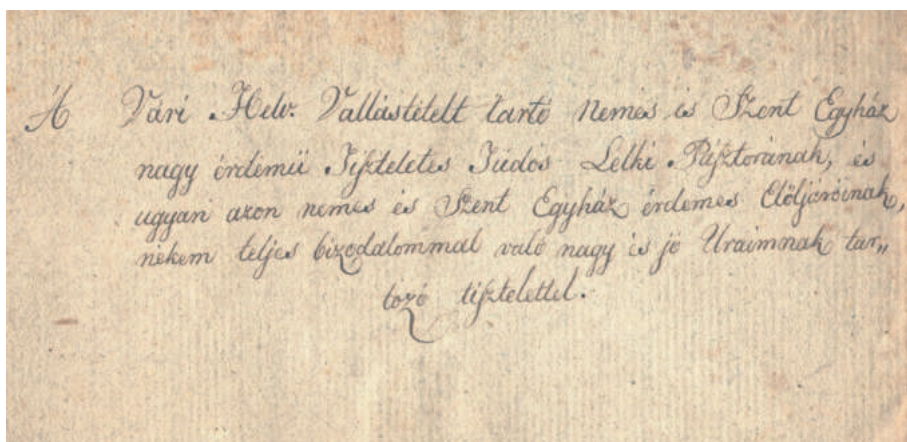 A Vári Helv. Vallástételt tartó Nemes és Szent Egyház
nagy érdemü Tiszteletes Tudós Lelki Pásztorának, és
ugyan azon nemes és Szent Egyház érdemes Elöljáróinak,
nékem teljes bizodalommal való nagy és jó Uraimnak tar„
tozó tisztelettel.